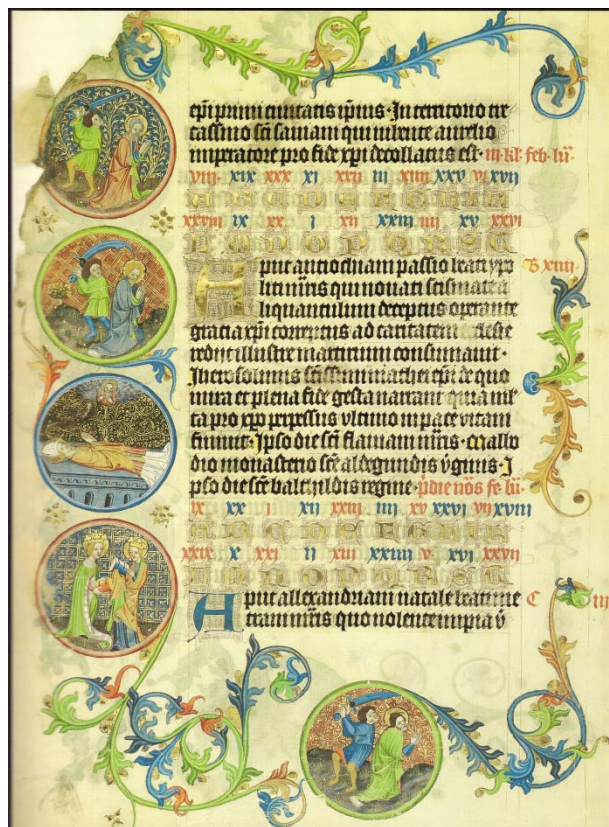 epi primi ciuitatis ipius · In territorio tre
cassino sci sauiani qui iubente aurelio
imperatore pro fide xpi decollatus est · iii · kl · feb · lu
viii · xix xxx xi xxii iii xiiii xxv vi xvii
A B C D E F G H
xxviii ix xx i xii xxiii iiii xv xxvi
N O P Q R S T
Aput antiochiam passio beati ypo B xiiii
liti mris qui nouati scismate a
liquantulum deceptus operante
gracia xpi correctus ad caritatem ecclesie
rediit illustre martirium consumauit ·
Iherosolimis scissimi mathei epi de quo
mira et plena fide gesta narrant quia mul
ta pro xpo perpessus vltimo in pace vitam
finiuit · Ipso die sci flauiani mris · mallo
dio monasterio sce aldegundis vginis · I
pso die sce baltildis regine · pdie nos fe lu ·
ix xx i xii xxiii iiii xv xxvi vii xviii
A B C D E F G H
xxix x xxi ii xiii xxiiii v xvi xxvii
N O P Q R S T
Aput allexandriam natale beati me C iii
trani mris quo nolente impia v